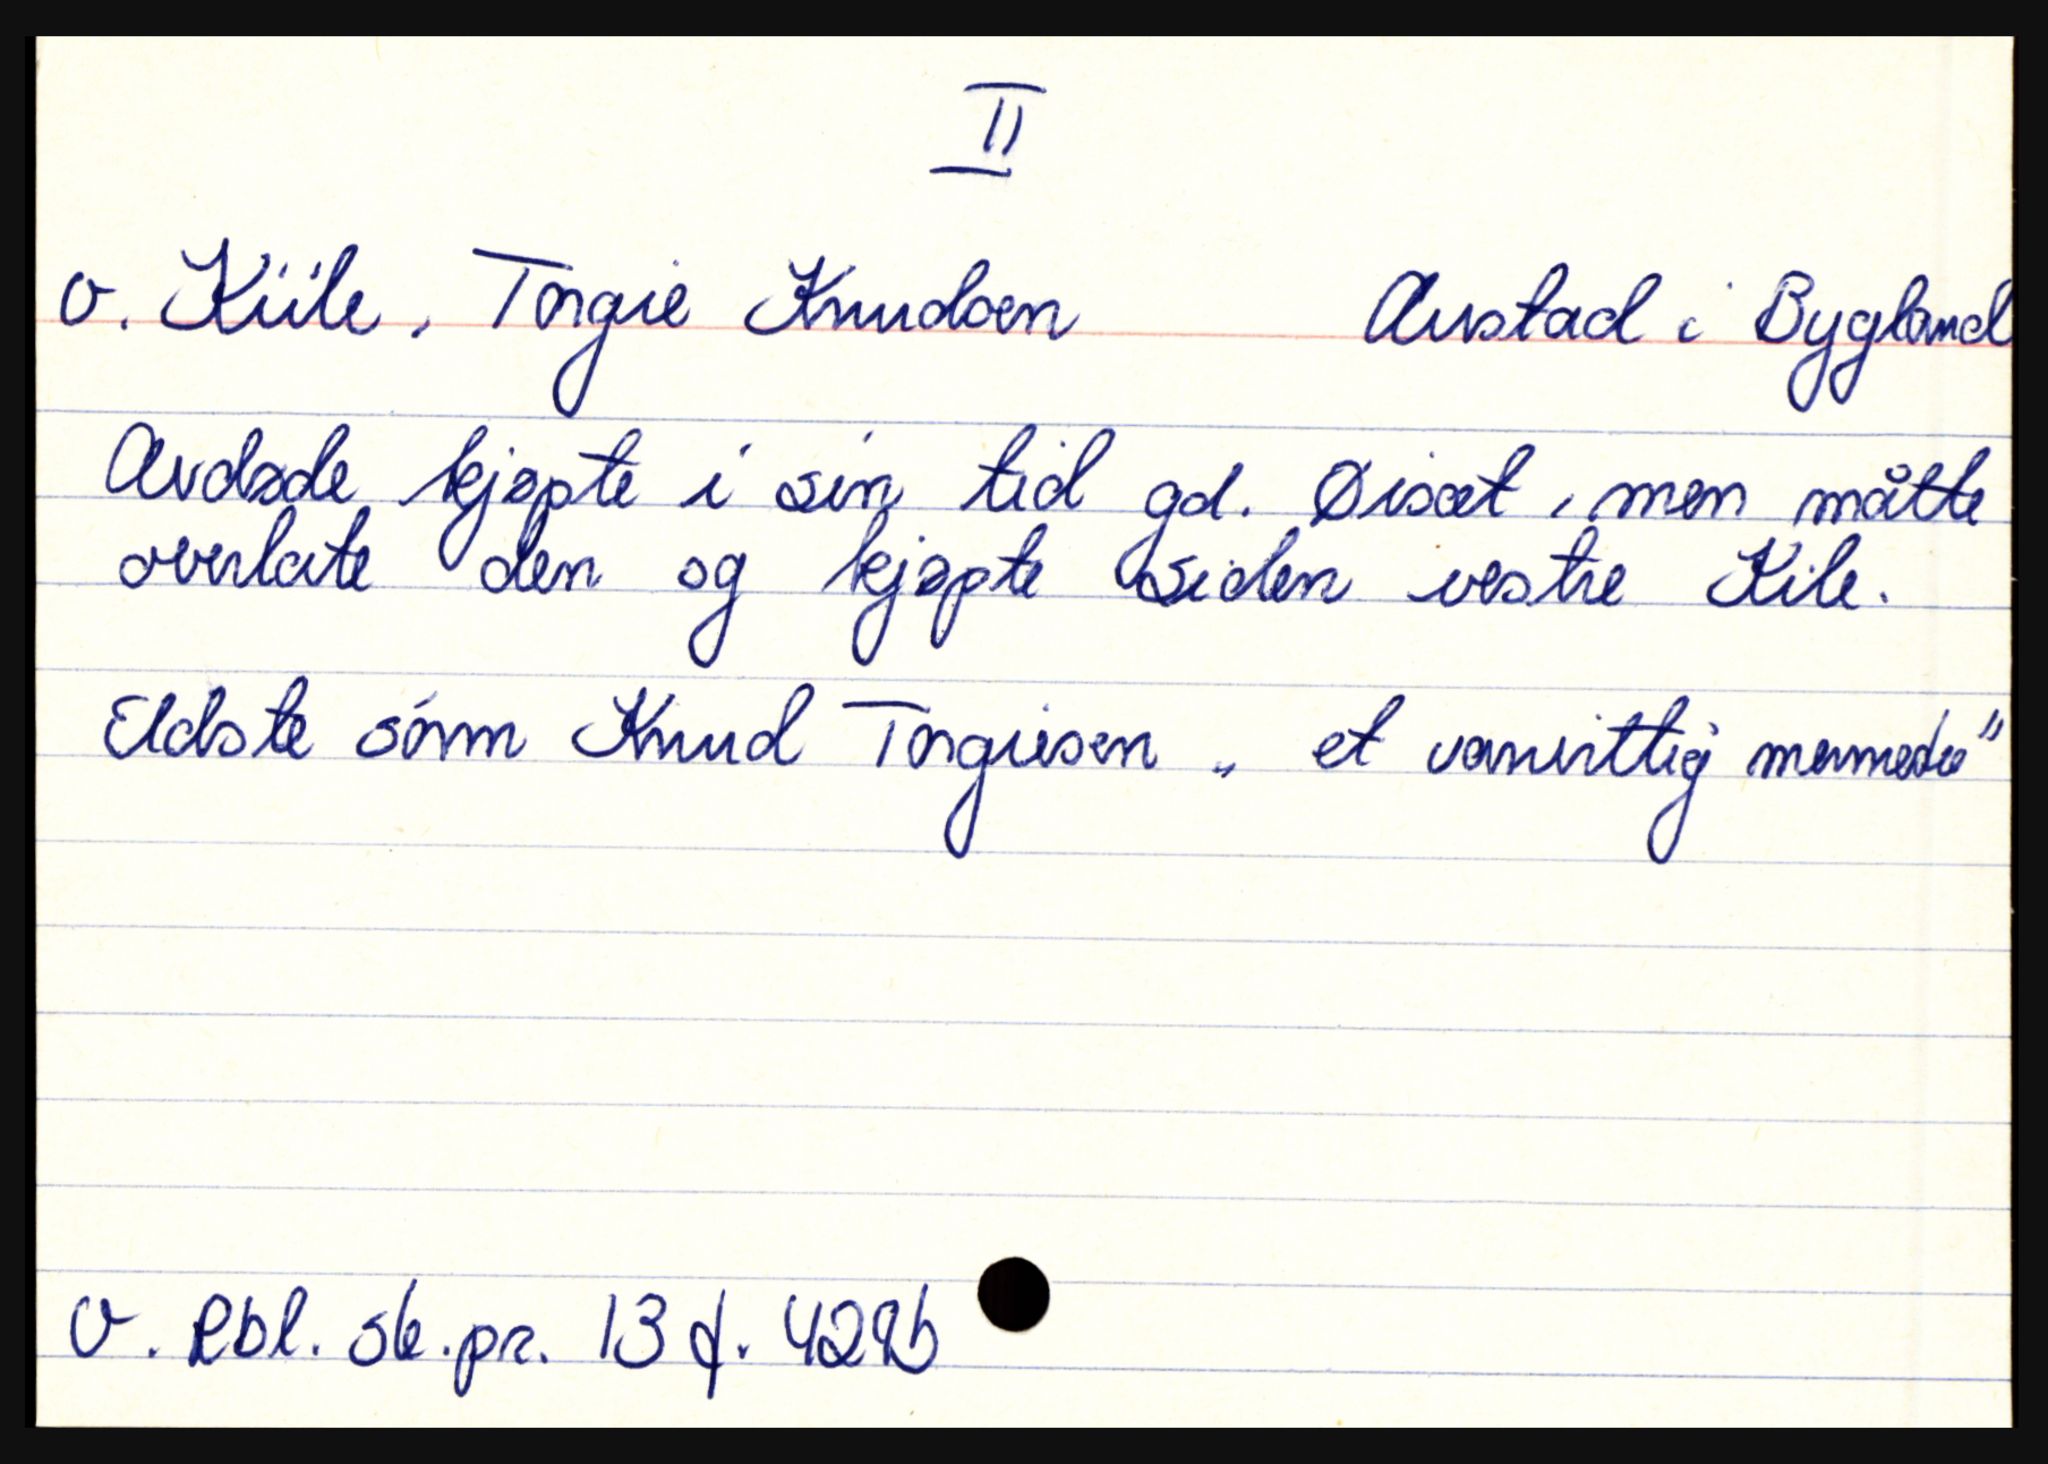 II
v. Kiile, Torgie Knudsen Austad i Bygland
Avdøde kjøpte i sin tid gd. Øisæt, men måtte
overlate den og kjøpte siden vestre Kile.
Eldste sønn Knud Torgiesen „ et vanvittig menneske”
v. Rbl. sk.pr. 13 f. 429b